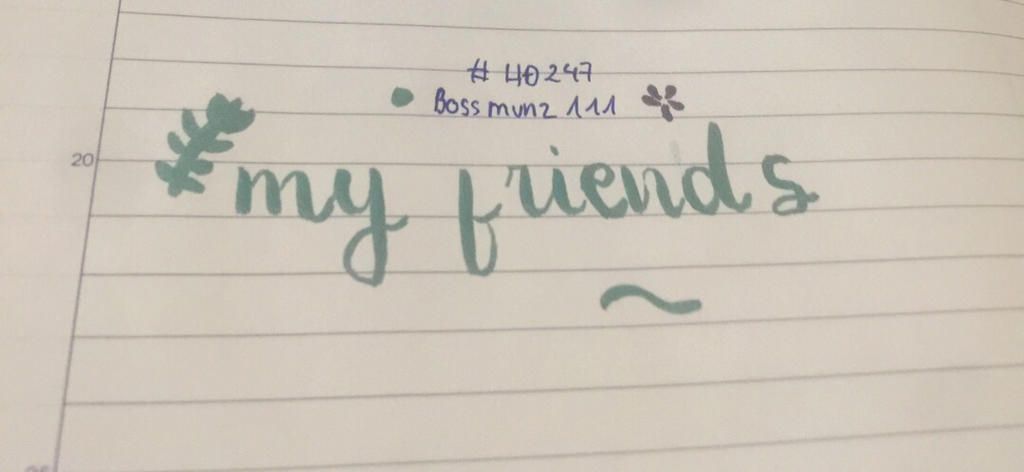 # 40247
Bossmunz 111
20
my friends